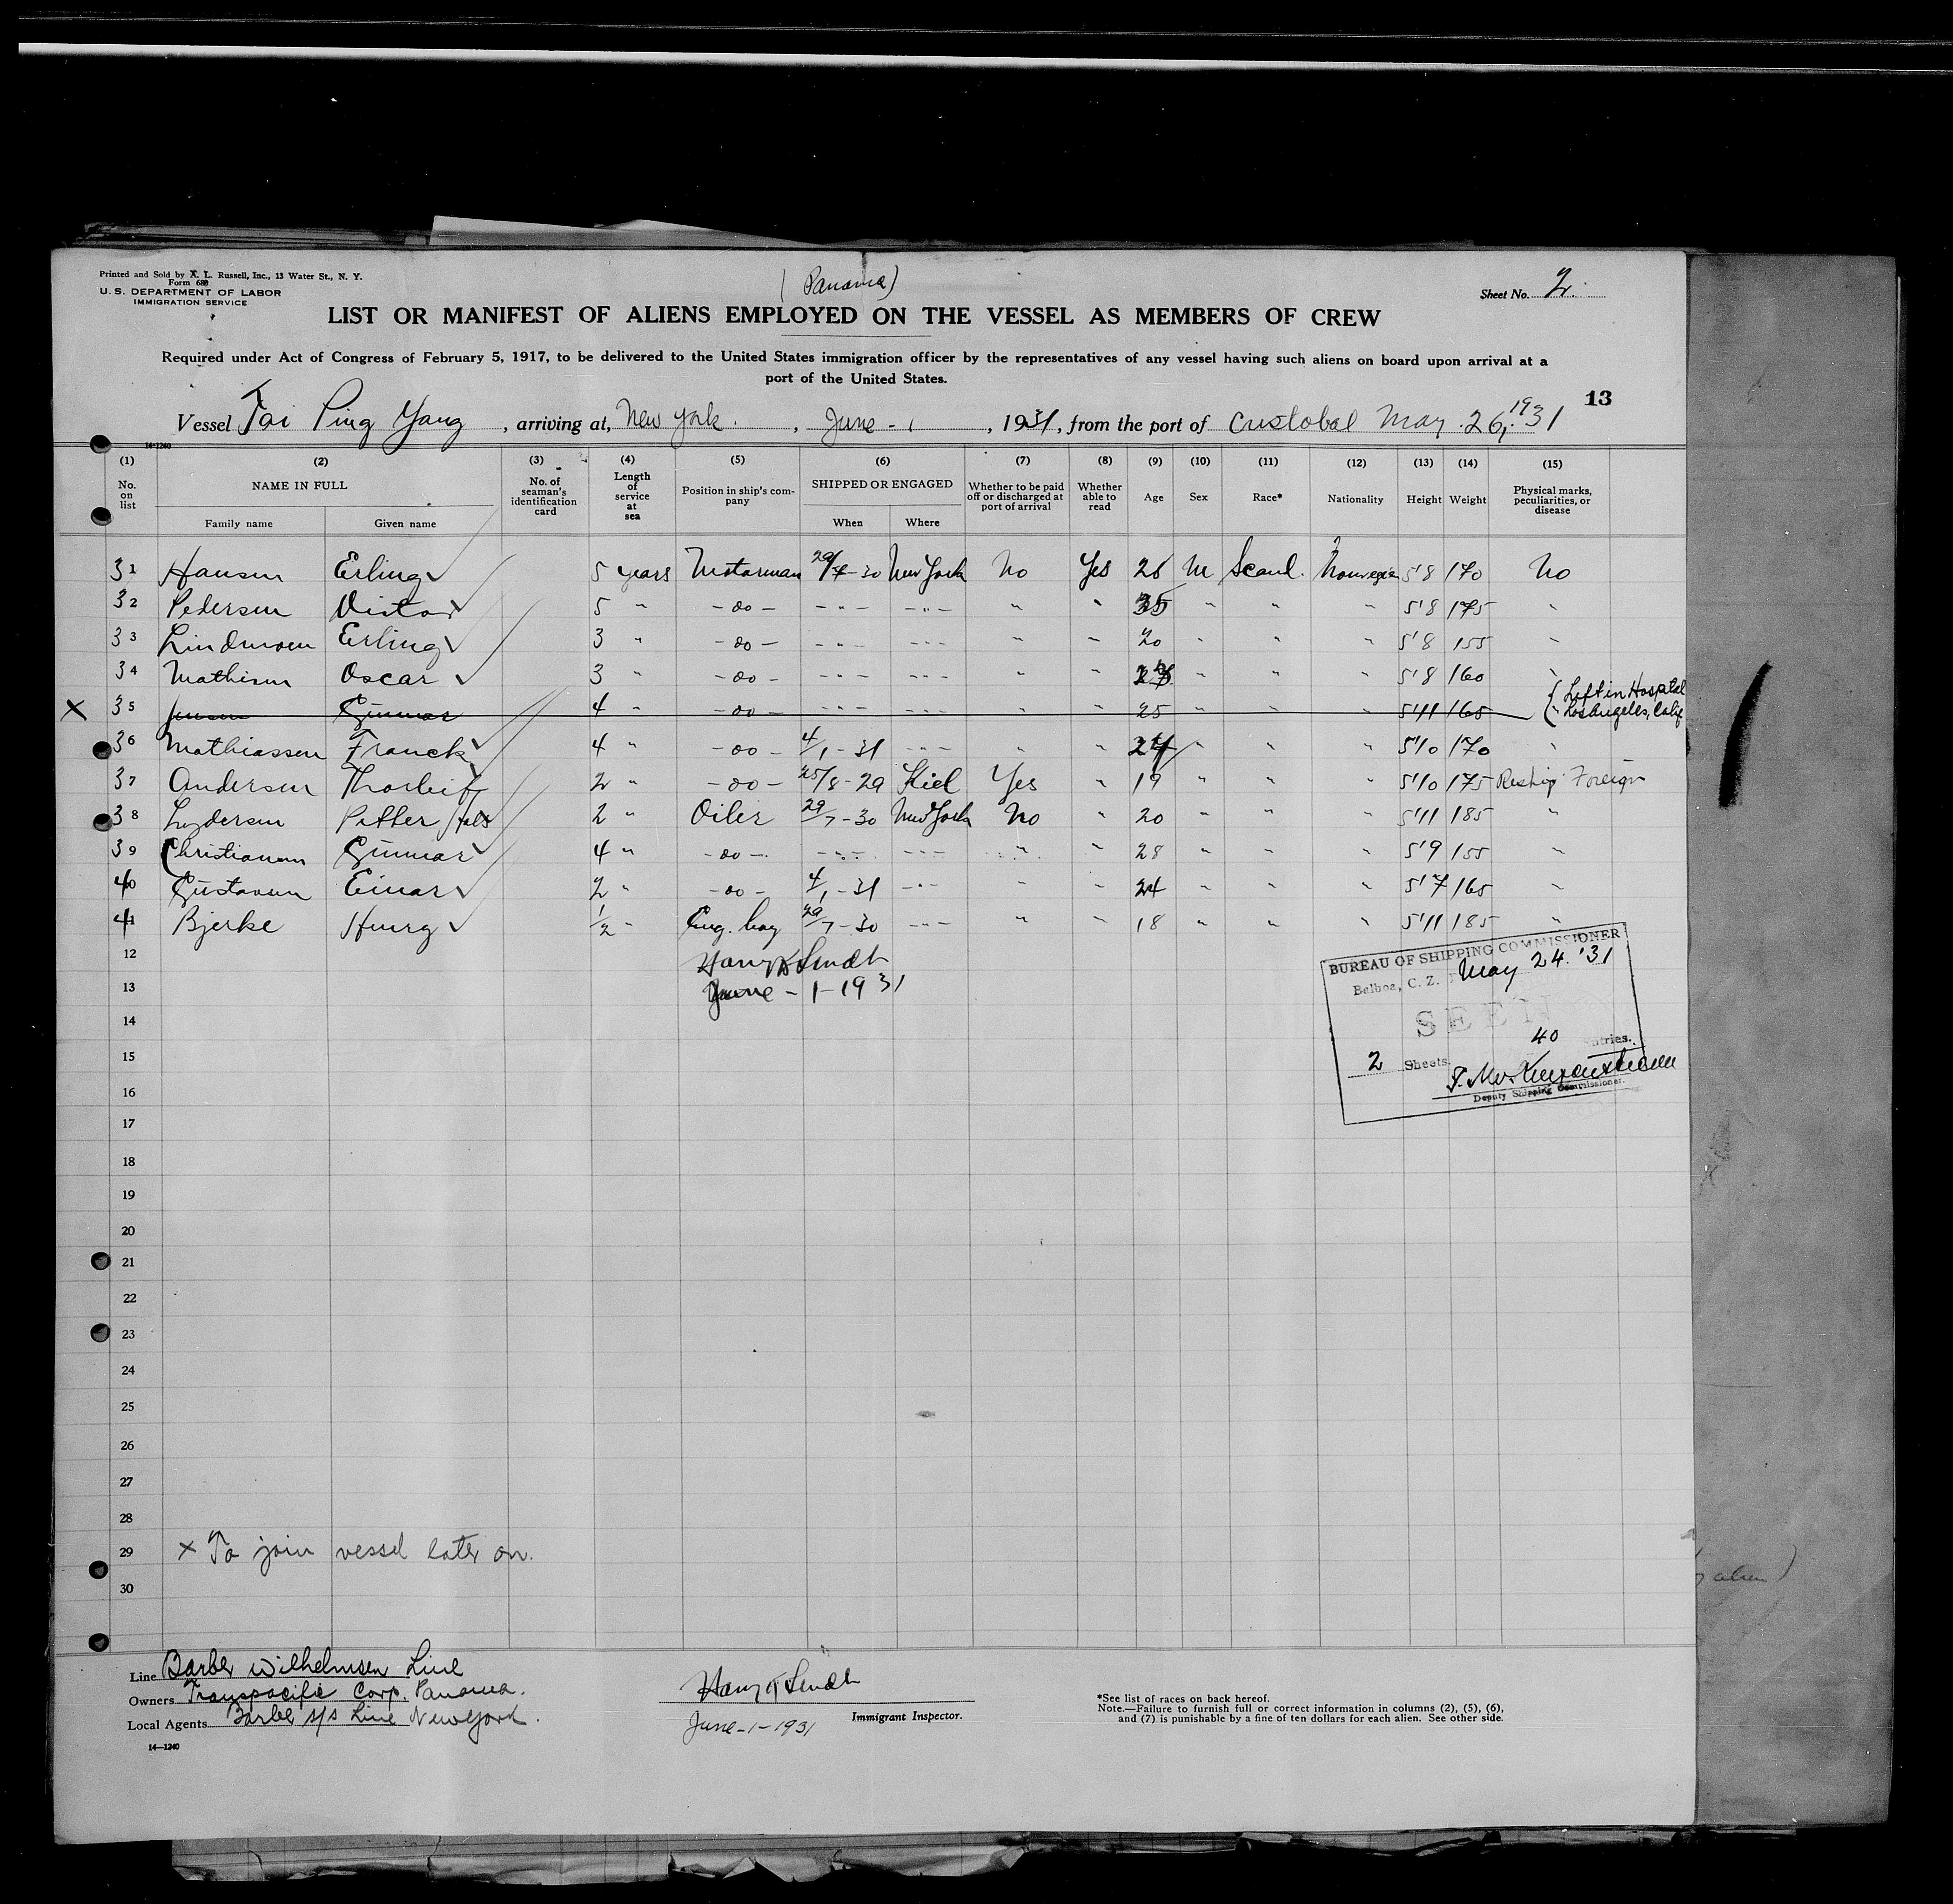 Printed and Sold by A. L. Russell, Inc., 13 Water St., N. Y.
Form 680
U. S. DEPARTMENT OF LABOR
IMMIGRATION SERVICE
(Panama)
Sheet No. 2.
LIST OR MANIFEST OF ALIENS EMPLOYED ON THE VESSEL AS MEMBERS OF CREW
Required under Act of Congress of February 5, 1917, to be delivered to the United States immigration officer by the representatives of any vessel having such aliens on board upon arrival at a
port of the United States.
13
Vessel Tai Ping Yang, arriving at, New York., June - 1, 1931, from the port of Cristobal May 26, 1931
14-1240
(1) (2) (3) (4) (5) (6) (7) (8) (9) (10) (11) (12) (13) (14) (15)
No. on list NAME IN FULL Family name Given name No. of seaman's identification card Length of service at sea Position in ship's company SHIPPED OR ENGAGED When Where Whether to be paid off or discharged at port of arrival Whether able to read Age Sex Race* Nationality Height Weight Physical marks, peculiarities, or disease
31 Hansen Erling ✓ 5 years Motorman 29/7-30 New York No Yes 26 M Scand. Norwegian 5'8 170 No
32 Pedersen Victor ✓ 5 " -do- -"- -"- " " 35 " " " 5'8 175 "
33 Erling ✓ 3 " -do- -"- -"- " " 20 " " " 5'8 155 "
34 Mathisen Oscar ✓ 3 " -do- -"- -"- " " " " " 5'8 160 "
X 35 Jensen Gunnar 4 " -do- -"- -"- " " 25 " " " 5'11 165 { Left in Hospital
Los Angeles, Calif
36 Mathiassen Franck ✓ 4 " -do- 4/1-31 -"- " " 24 " " " 5'10 170 "
37 Andersen Thorleif 2 " -do- 25/8-29 Kiel Yes " 19 " " " 5'10 175 Reship Foreign
38 Lydersen Petter 2 " Oiler 29/7-30 New York No " 20 " " " 5'11 185 "
39 Christiansen Gunnar ✓ 4 " -do- -"- -"- " " 28 " " " 5'9 155 "
40 Gustavsen Einar ✓ 2 " -do- 4/1-31 -"- " " 24 " " " 5'7 165 "
41 Bjerke Henry ✓ 1/2 " Eng. boy 29/7-30 -"- " " 18 " " " 5'11 185 "
12 Harry
13 June - 1 - 1931
BUREAU OF SHIPPING COMMISSIONER
Balboa, C. Z. May 24. '31
SEEN
40 entries.
2 Sheets
Deputy Shipping Commissioner.
14
15
16
17
18
19
20
21
22
23
24
25
26
27
28
29 x To join vessel later on.
30
Line Barber Wilhelmsen Line
Owners Transpacific Corp. Panama.
Local Agents Barber S/S Line New York.
14-1240
Harry
Immigrant Inspector.
June - 1 - 1931
*See list of races on back hereof.
Note.—Failure to furnish full or correct information in columns (2), (5), (6),
and (7) is punishable by a fine of ten dollars for each alien. See other side.
alien)